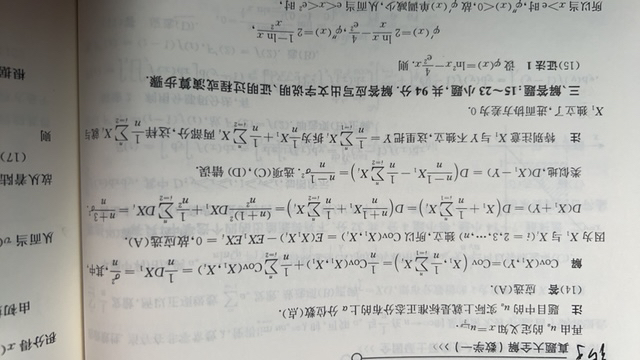 真题大全解(数学一)>>>
再由 uₐ 的定义知 x = u
注 题目中的 uₐ 实际上就是标准正态分布的上 α 分位数(点).
(14)答 应选(A).
解 Cov(X₁,Y) = Cov(X₁, 1/n ∑ᵢ₌₁ⁿ Xᵢ) = 1/n Cov(X₁,X₁) + 1/n ∑ᵢ₌₂ⁿ Cov(X₁,Xᵢ) = 1/n DX₁ = σ²/n, 其中,
因为 X₁ 与 Xᵢ(i = 2,3,…,n) 独立, 所以 Cov(X₁,Xᵢ) = E(X₁Xᵢ) − EX₁EXᵢ = 0, 故应选(A).
D(X₁+Y) = D(X₁ + 1/n ∑ᵢ₌₁ⁿ Xᵢ) = D((n+1)/n X₁ + 1/n ∑ᵢ₌₂ⁿ Xᵢ) = (n+1)²/n² DX₁ + 1/n² ∑ᵢ₌₂ⁿ DXᵢ = (n+3)/n σ².
类似地, D(X₁ − Y) = D((n−1)/n X₁ − 1/n ∑ᵢ₌₂ⁿ Xᵢ) = (n−1)/n σ². 选项(C),(D) 错误.
注 特别注意 X₁ 与 Y 不独立, 这里把 Y = 1/n ∑ᵢ₌₁ⁿ Xᵢ 拆为 1/n X₁ + 1/n ∑ᵢ₌₂ⁿ Xᵢ 两部分, 这样 1/n ∑ᵢ₌₂ⁿ Xᵢ 就与
X₁ 独立了, 进而协方差为 0.
三、解答题:15~23 小题, 共 94 分. 解答应写出文字说明、证明过程或演算步骤.
(15)证法 1 设 φ(x) = ln²x − 4/e² x, 则
φ′(x) = 2 ln x/x − 4/e², φ″(x) = 2 (1 − ln x)/x²,
所以当 x > e 时, φ″(x) < 0, 故 φ′(x) 单调减少, 从而当 e < x < e² 时,
积分得 x(
由初
从而 v(
故从着陆
(17)
则
根据